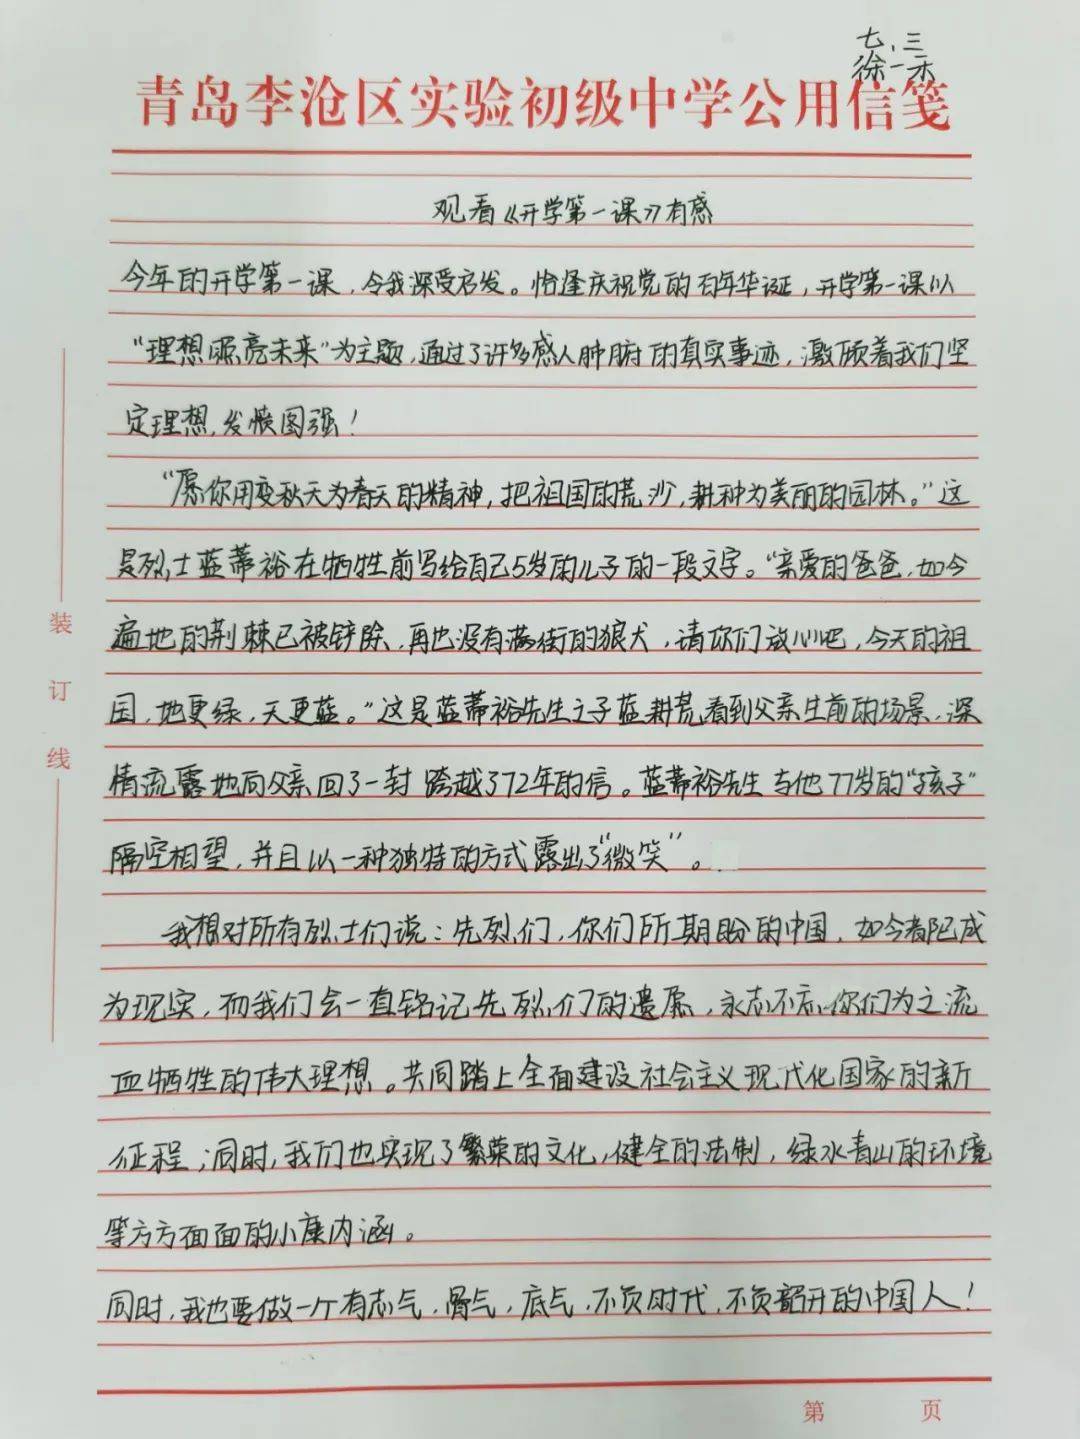 七、三
徐一禾
青岛李沧区实验初级中学公用信笺
观看《开学第一课》有感
今年的开学第一课，令我深受启发。恰逢庆祝党的百年华诞，开学第一课以
“理想照亮未来”为主题，通过了许多感人肺腑的真实事迹，激励着我们坚
定理想，发愤图强！
“愿你用变秋天为春天的精神，把祖国的荒沙，耕种为美丽的园林。”这
是烈士蓝蒂裕在牺牲前写给自己5岁的儿子的一段文字。“亲爱的爸爸，如今
遍地的荆棘已被铲除，再也没有满街的狼犬，请你们放心吧，今天的祖
国，地更绿，天更蓝。”这是蓝蒂裕先生之子蓝耕荒看到父亲生前的场景，深
情流露地向父亲回了一封跨越了72年的信。蓝蒂裕先生与他77岁的“孩子”
隔空相望，并且以一种独特的方式露出了“微笑”。
我想对所有烈士们说：先烈们，你们所期盼的中国，如今都已成
为现实，而我们会一直铭记先烈们的遗愿，永志不忘你们为之流
血牺牲的伟大理想。共同踏上全面建设社会主义现代化国家的新
征程，同时，我们也实现了繁荣的文化，健全的法制，绿水青山的环境
等方方面面的小康内涵。
同时，我也要做一个有志气，骨气，底气，不负时代，不负韶华的中国人！
装
订
线
第 页